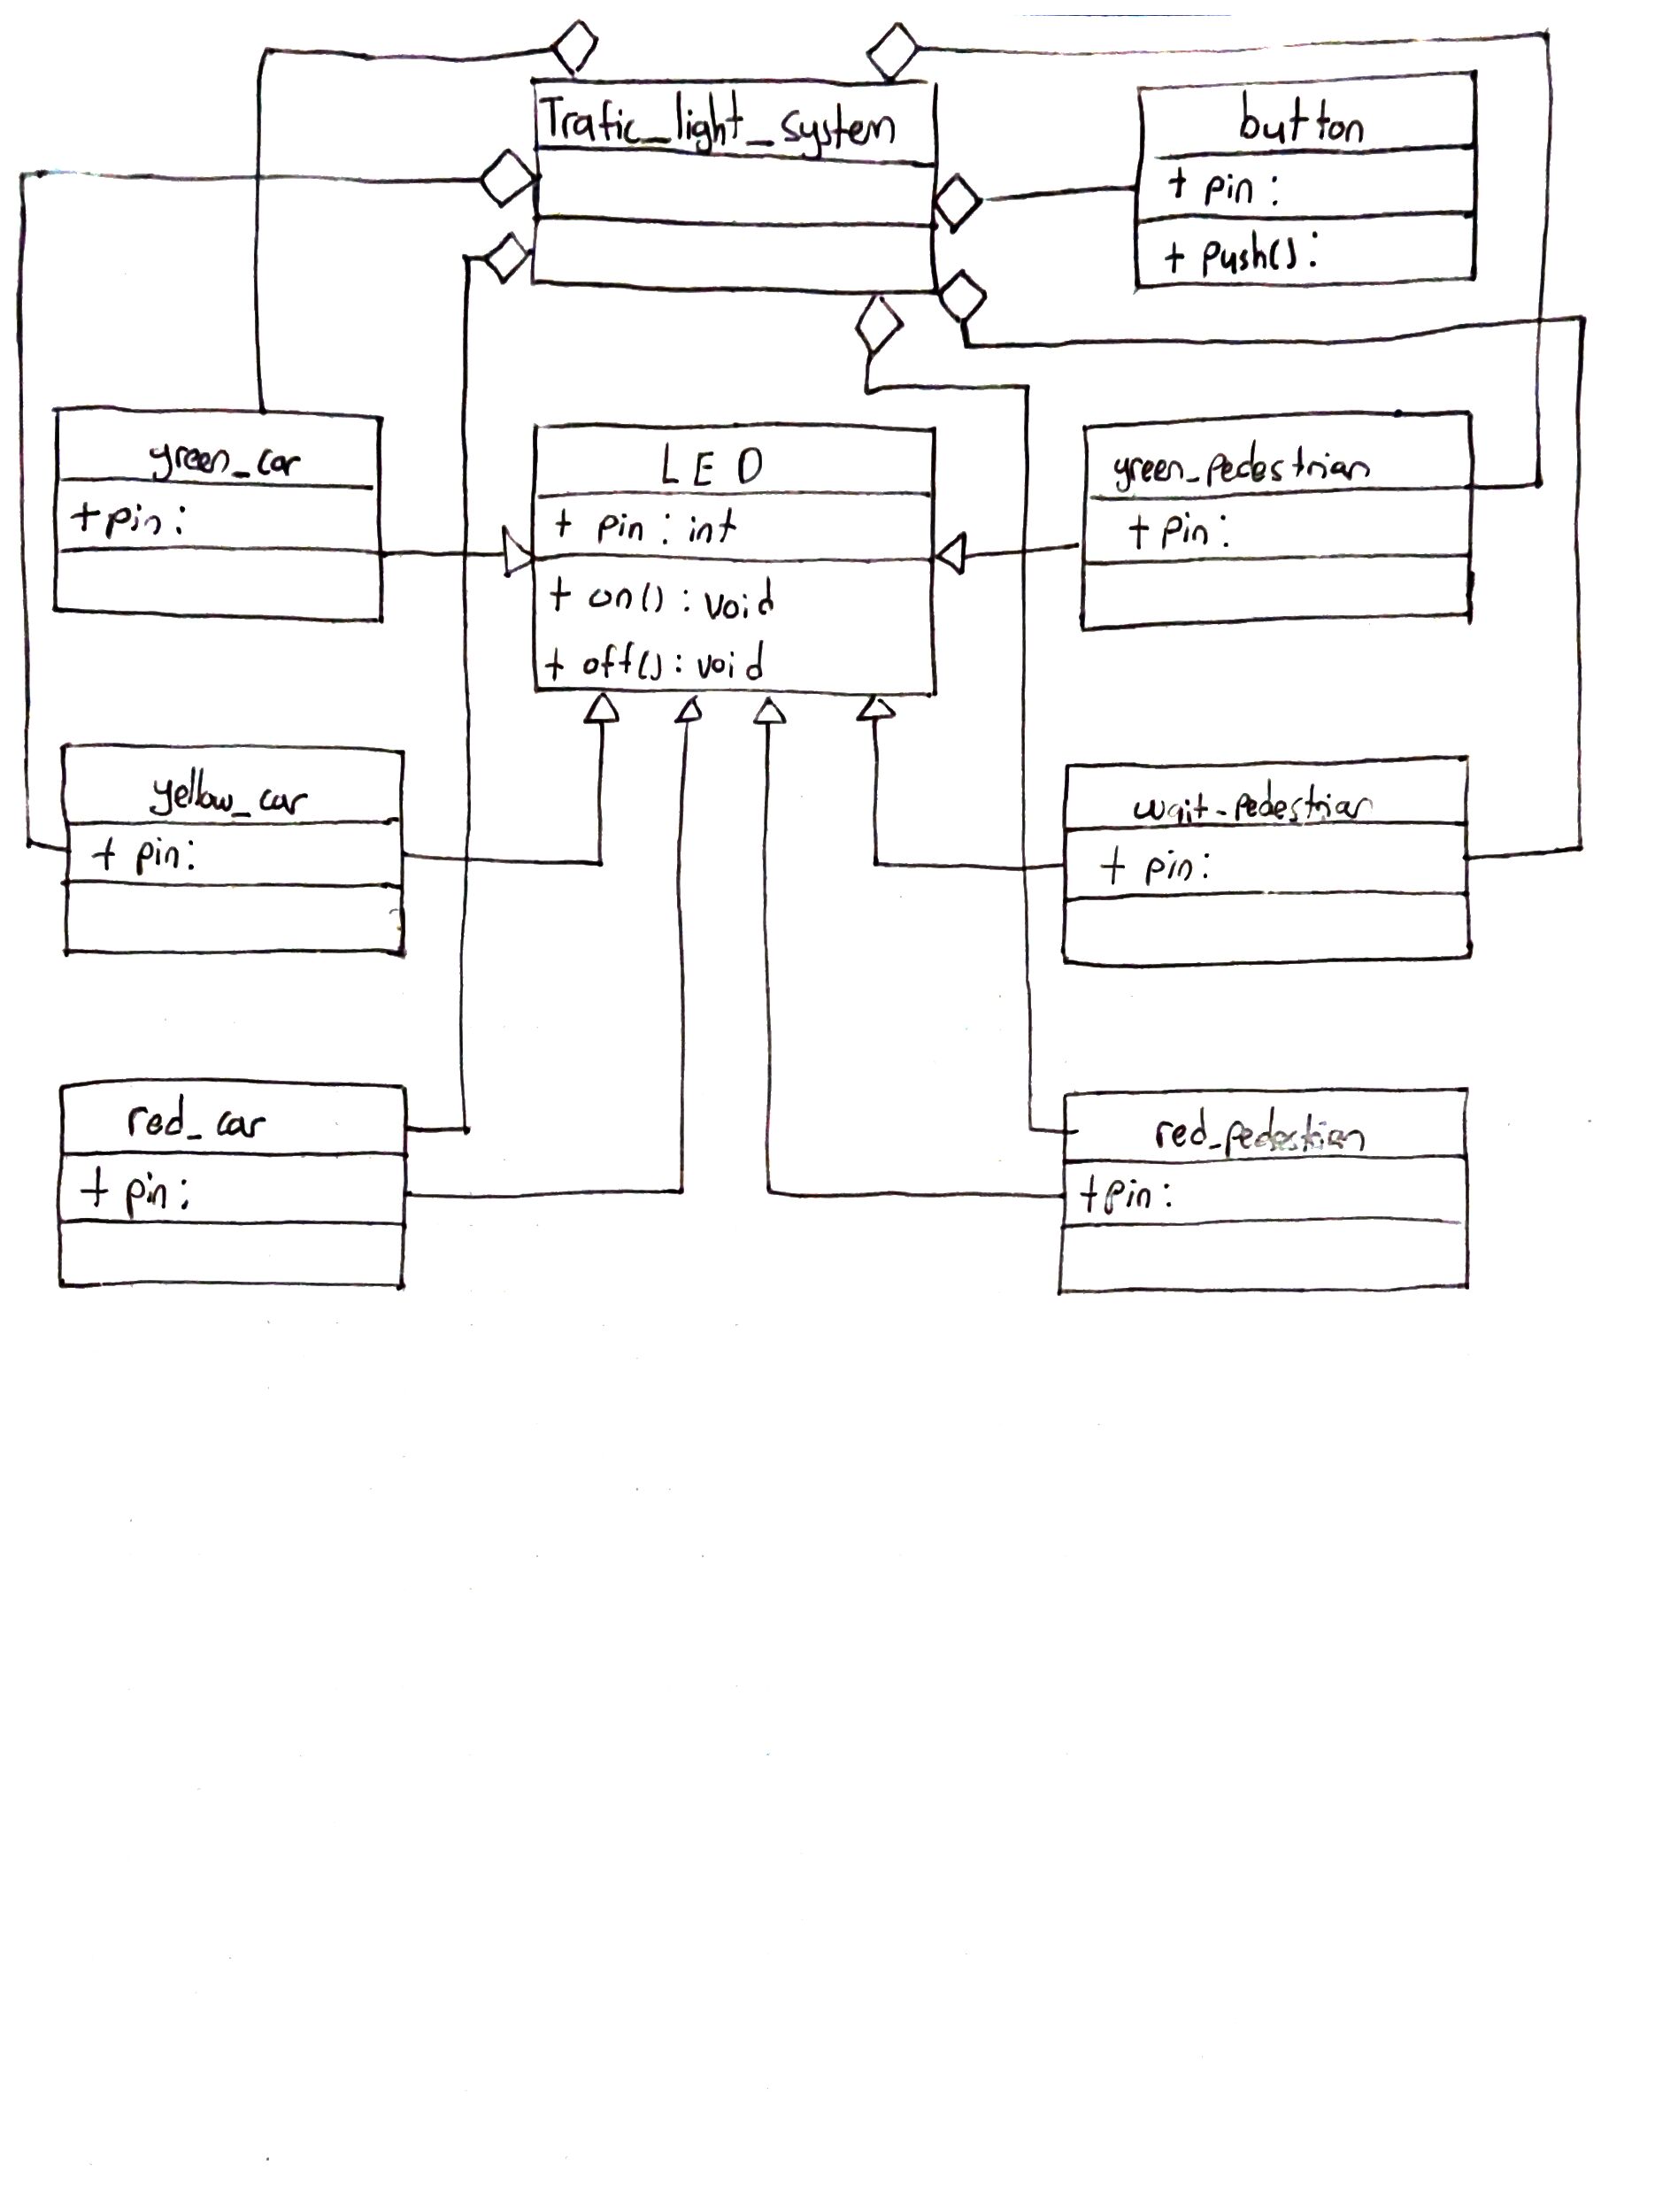 Trafic_light_system
button
+ pin :
+ push() :
green_car
+ pin :
LED
+ pin : int
+ on() : void
+ off() : void
green_pedestrian
+ pin :
yellow_car
+ pin :
wait_pedestrian
+ pin :
red_car
+ pin :
red_pedestrian
+ pin :